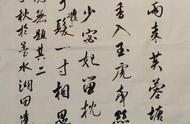 雨來芙蓉塘
香入玉虎牽絲
少宓妃留枕
發一寸相思
無題其二
秋於墨水湖田